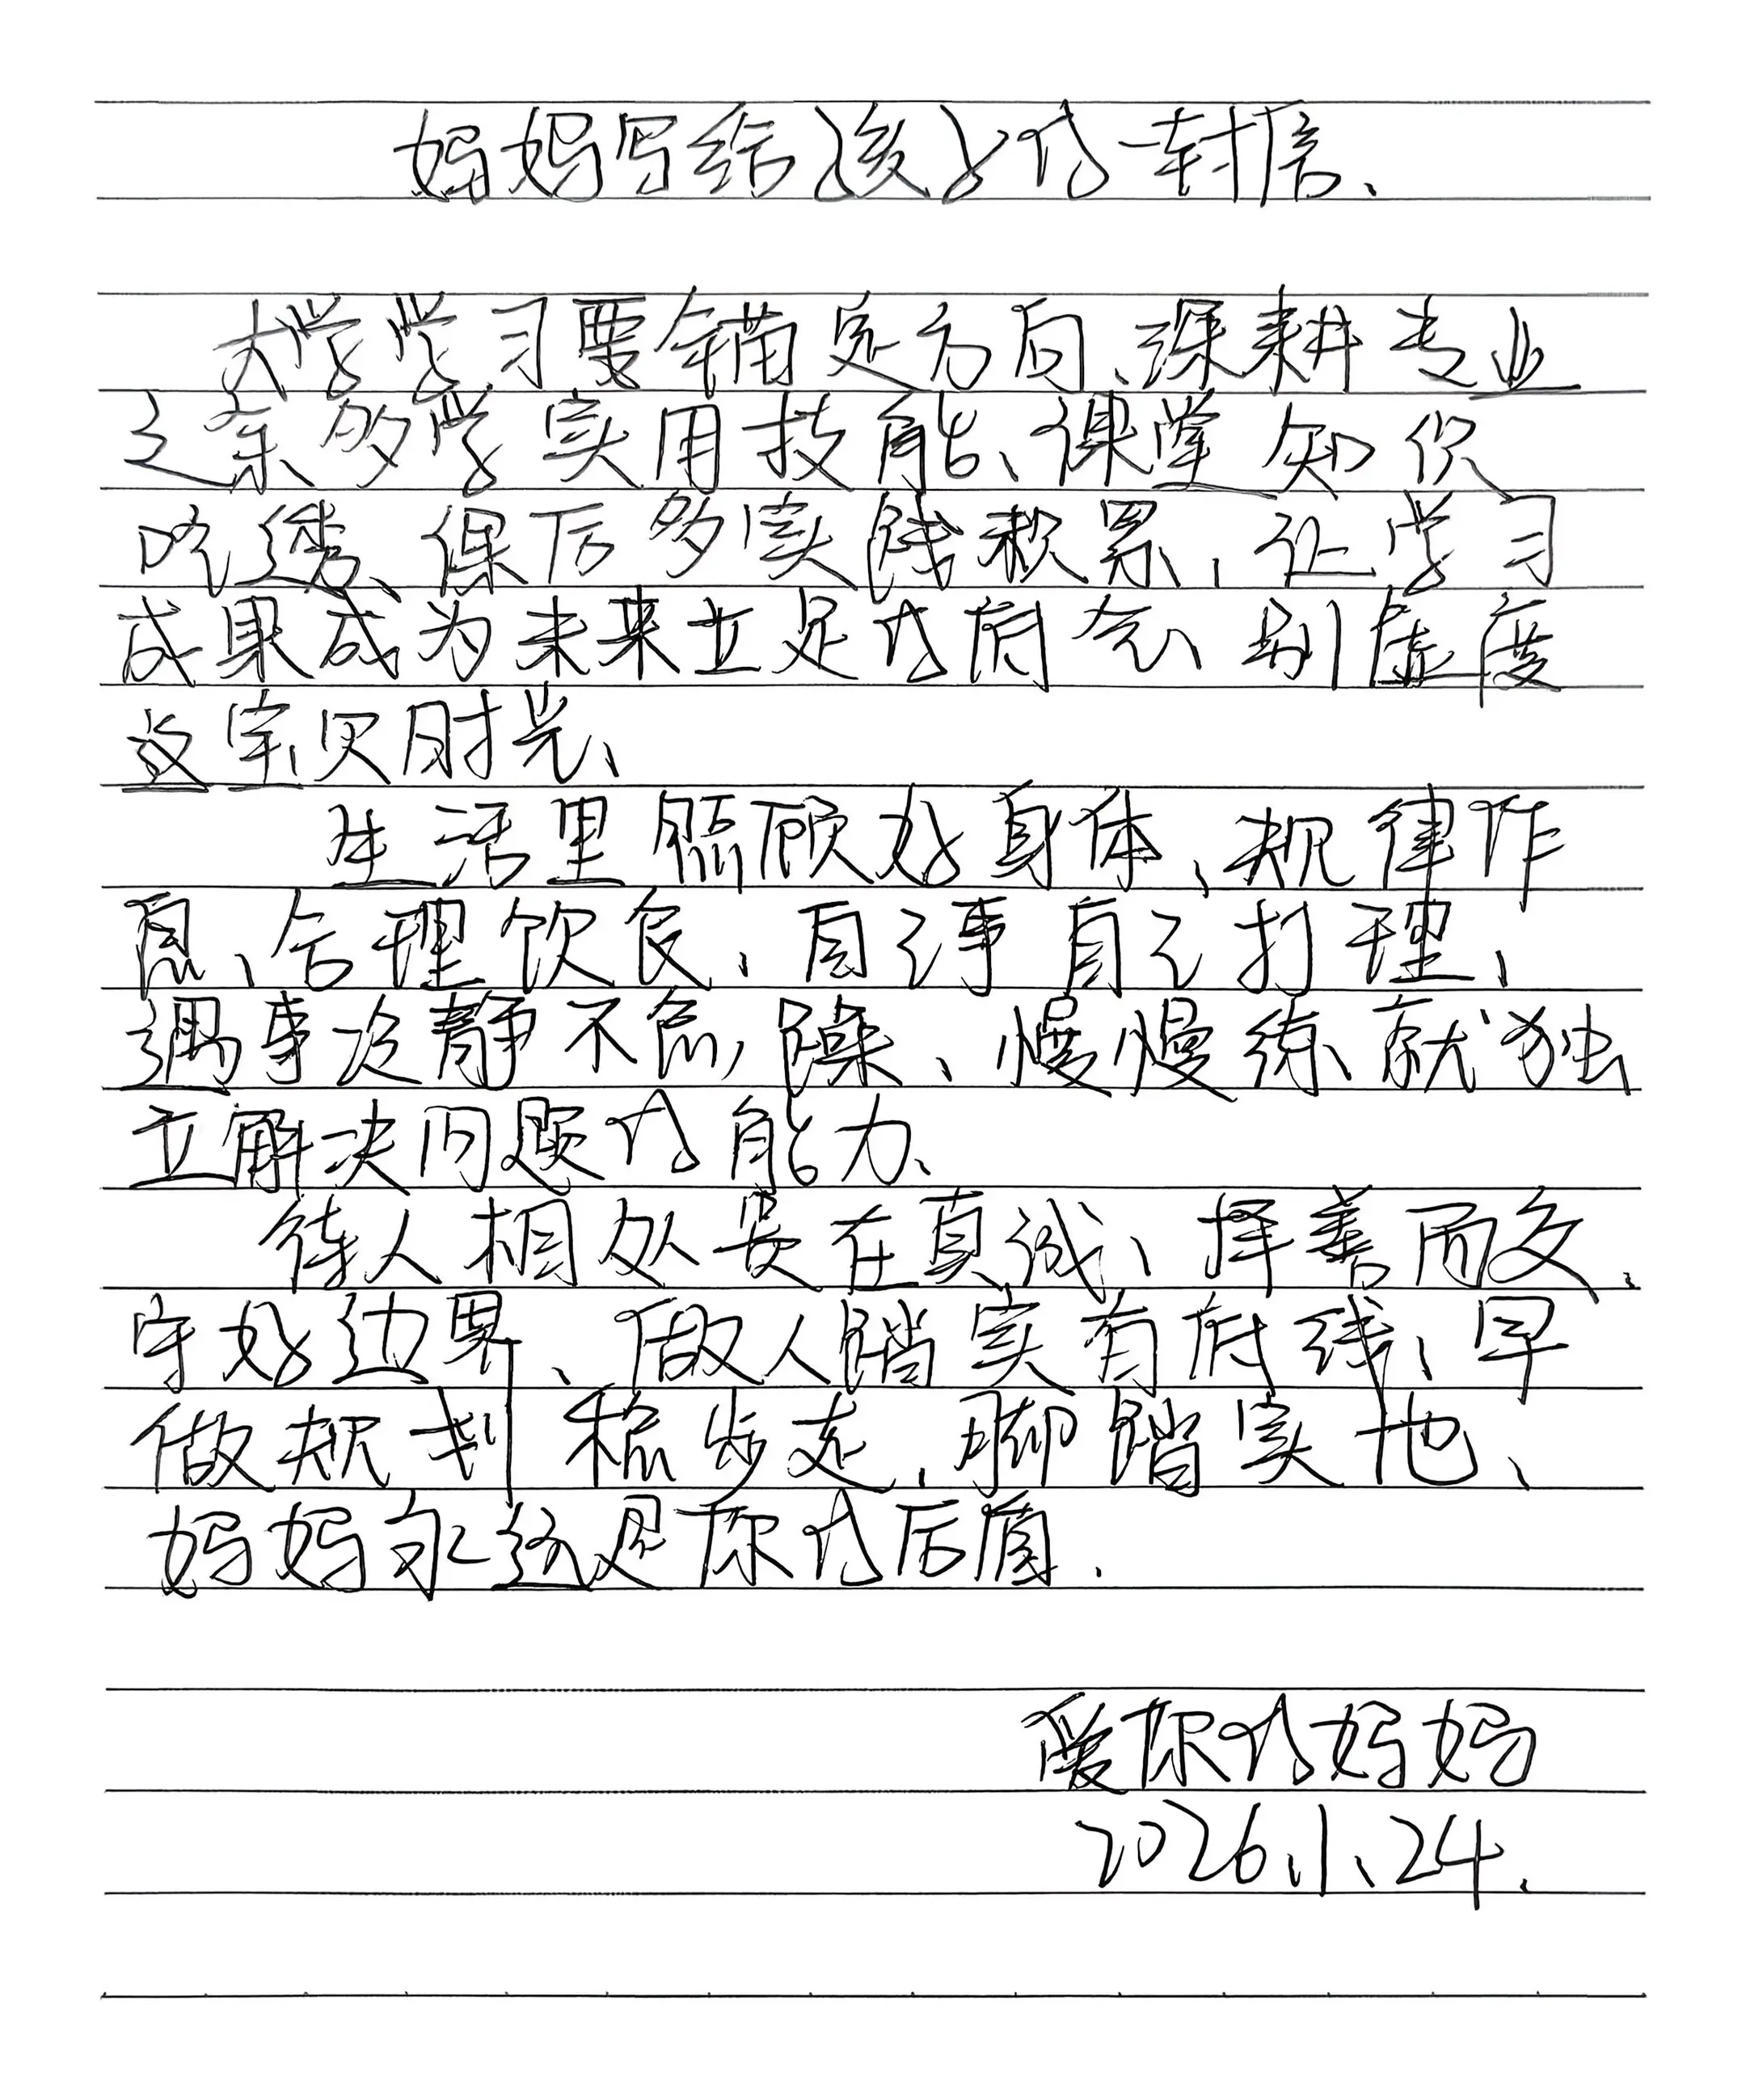 妈妈写给孩子的一封信、
大学学习要锚定方向、深耕专业
之余多学实用技能、课堂知识
吃透、课后多实践积累，让学习
成果成为未来立足的底气、别虚度
这宝贝时光、
生活里照顾好身体、规律作
息、合理饮食、自己事自己打理、
遇事冷静不急躁、慢慢练就独
立解决问题的能力、
待人相处贵在真诚、择善而交、
守好边界、做人踏实有底线、早
做规划稳步走、脚踏实地、
妈妈永远是你的后盾.
爱你的妈妈
2026.1.24.